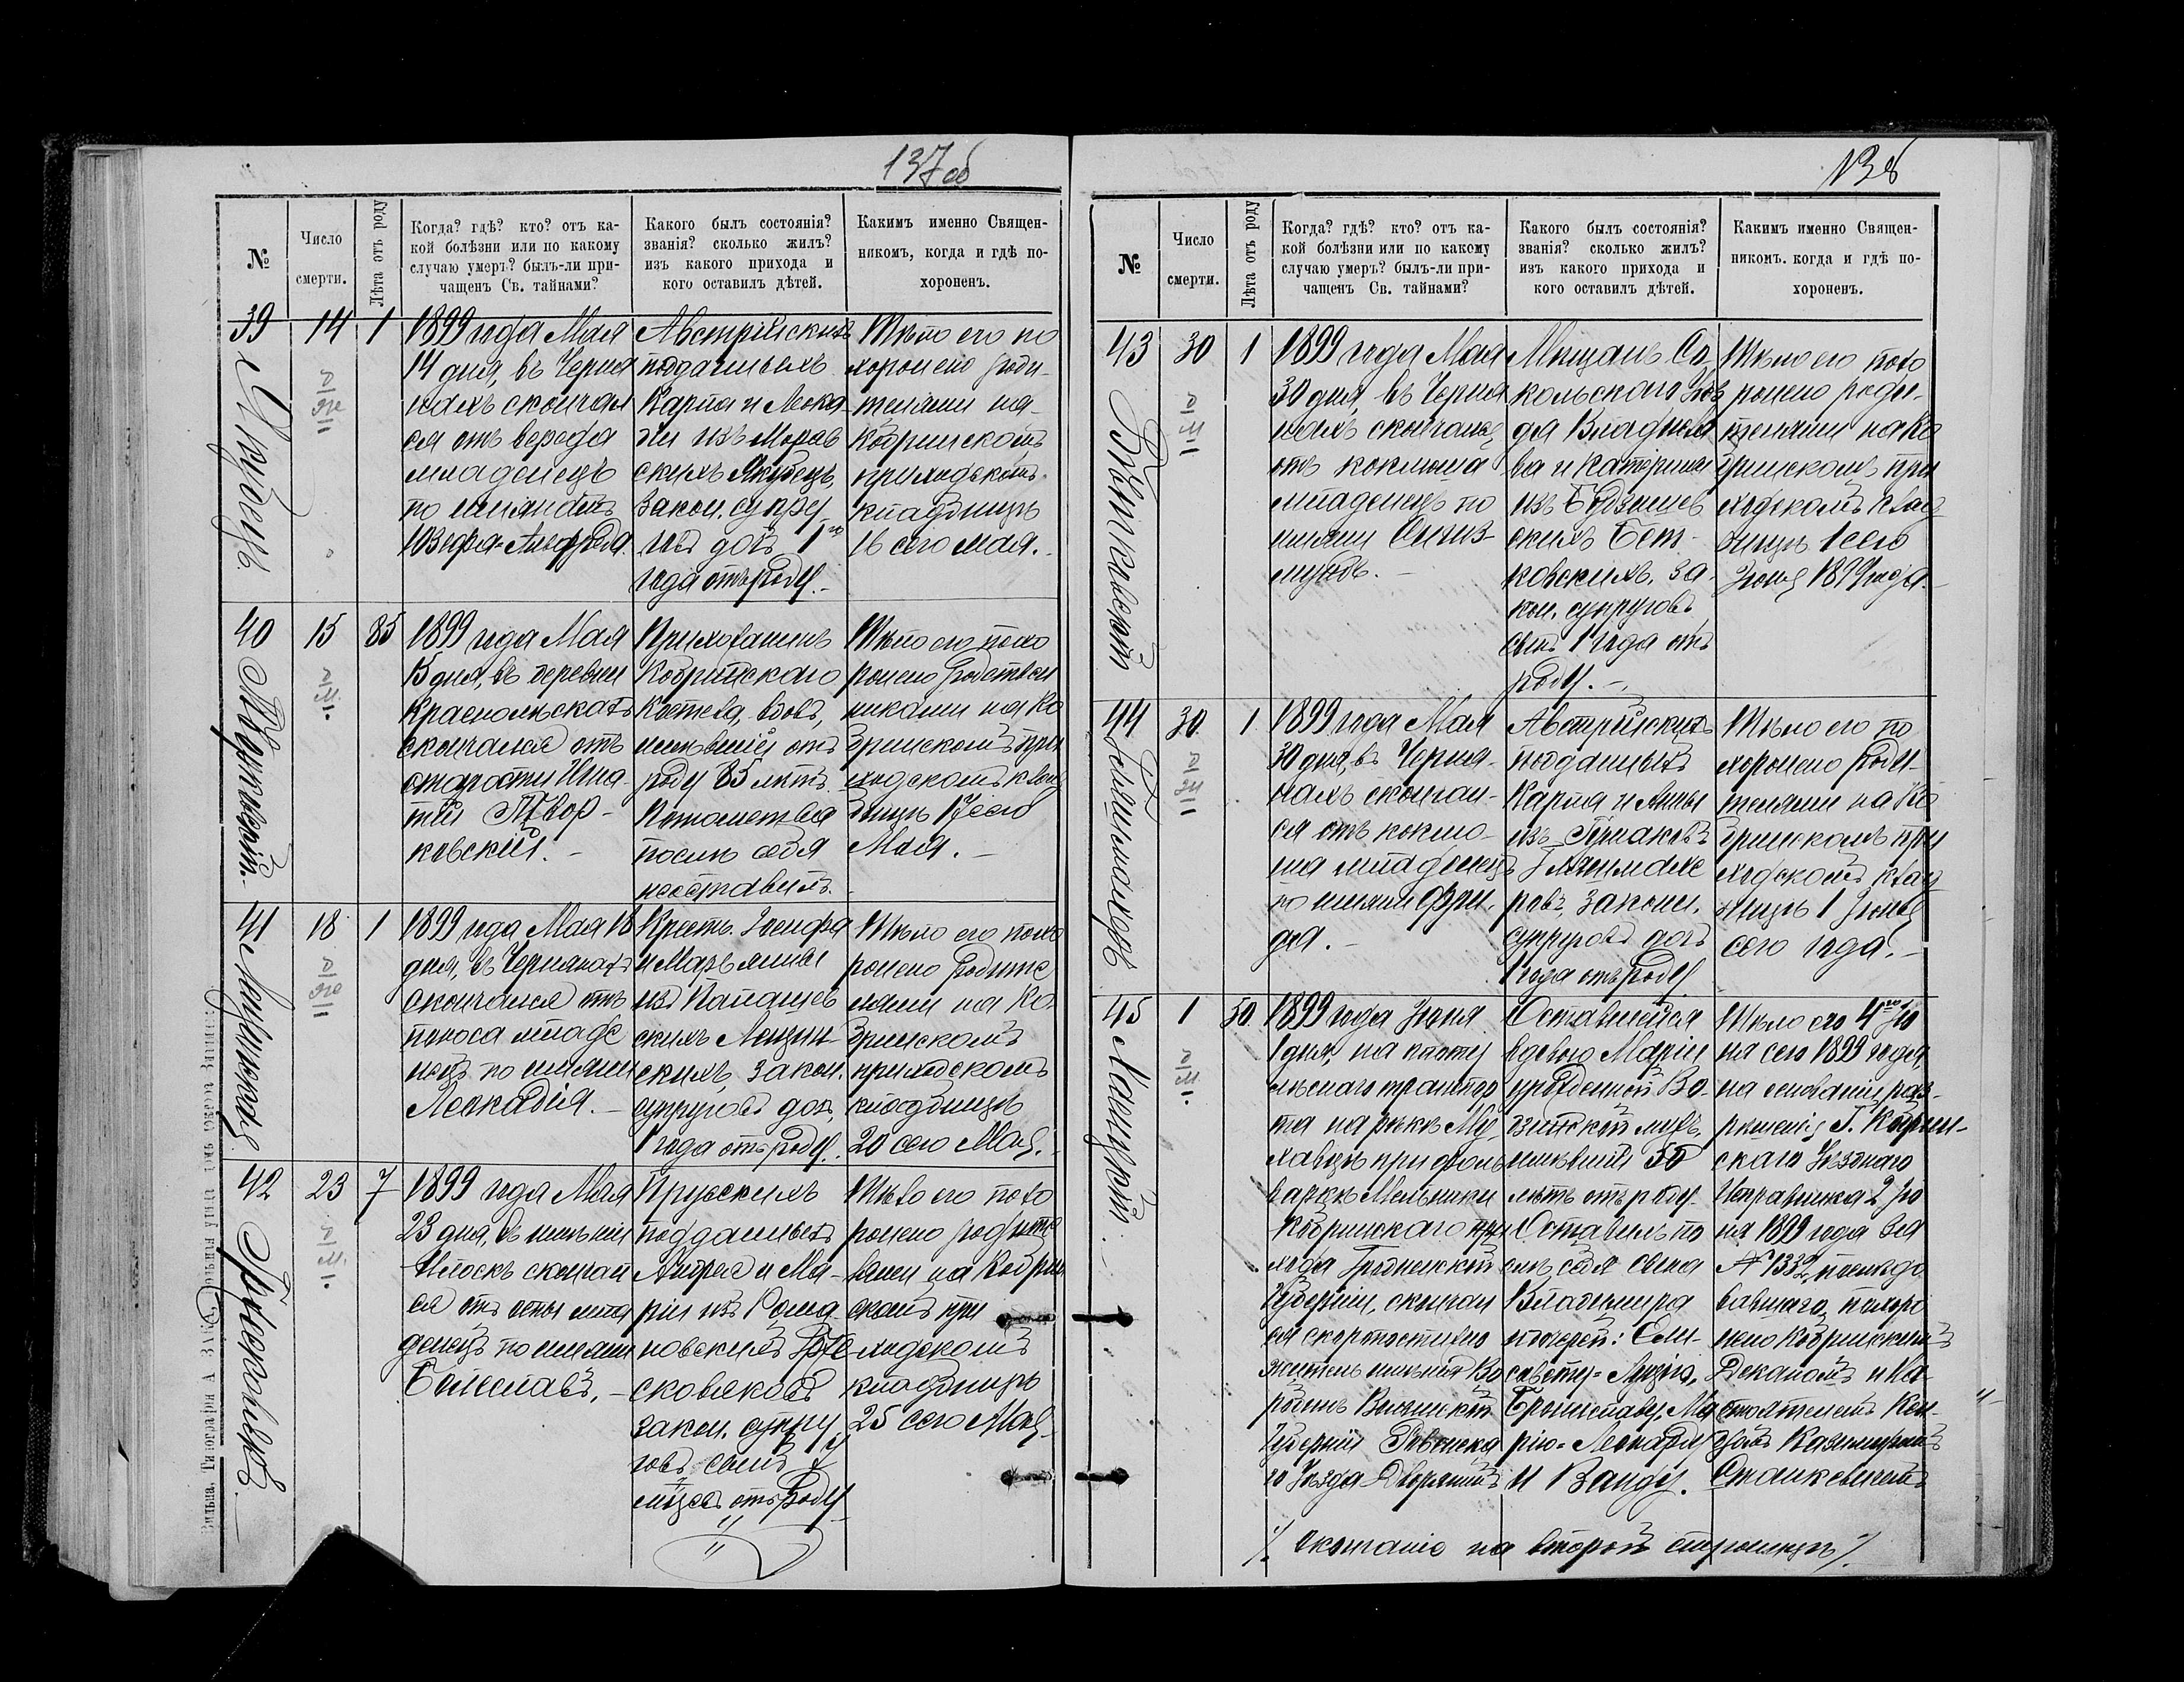 137 об
№
Число
смерти.
Лѣта отъ роду
Когда? гдѣ? кто? отъ ка-
кой болѣзни или по какому
случаю умеръ? былъ-ли при-
чащенъ Св. тайнами?
Какого былъ состоянія?
званія? сколько жилъ?
изъ какого прихода и
кого оставилъ дѣтей.
Какимъ именно Священ-
никомъ, когда и гдѣ по-
хороненъ.
39
14
1
1899 года Мая
14 дня, въ Черня
нахъ скончал
ся отъ вереда
младенецъ
по имянемъ
Юзефа-
Австрійскихъ
подданныхъ
Карла и Леока
діи изъ Морав
скихъ Якубецъ
закон. супру
говъ дочь 1го
года отъ роду.
Тѣло его по
хоронено роди-
телями на
Кобринскомъ
приходскомъ
кладбищѣ
16 сего мая.
40
15
85
1899 года Мая
15 дня, въ деревни
скончался отъ
старости Игна-
тій
ковскій.
Прихожанинъ
Кобринскаго
Костела, вдовъ,
имѣвшій отъ
роду 85 лѣтъ.
Потомства
послѣ себя
неоставилъ.
Тѣло его похо
ронено родствен
никами на Ко
бринскомъ при
ходскомъ клад
бищѣ 17 сего
Мая.
41
18
1
1899 года Мая 18
дня, въ Чернянахъ
скончался отъ
поноса младе
нецъ по имяни
Леокадія.
Крестъ. Іосифа
и Маріанны
скихъ
скихъ закон.
супруговъ дочь,
1 года отъ роду.
Тѣло его похо
ронено родите
лями на Ко-
бринскомъ
приходскомъ
кладбищѣ
20 сего Мая.
42
23
7
1899 года Мая
23 дня, въ имѣніи
Илоскъ скончал
ся отъ оспы мла
денецъ по имяни
Болеславъ.
Прусскихъ
подданныхъ
Андрея и Ма-
ріи изъ Рома
новскихъ
сковяковъ
закон. супру
говъ сынъ 7
мѣсяц. отъ роду
Тѣло его похо
ронено родите
лями на Кобрин
скомъ при
ходскомъ
кладбищѣ
25 сего Мая.
138
№
Число
смерти.
Лѣта отъ роду
Когда? гдѣ? кто? отъ ка-
кой болѣзни или по какому
случаю умеръ? былъ-ли при-
чащенъ Св. тайнами?
Какого былъ состоянія?
званія? сколько жилъ?
изъ какого прихода и
кого оставилъ дѣтей.
Какимъ именно Священ-
никомъ. когда и гдѣ по-
хороненъ.
43
30
1
1899 года Мая
30 дня, въ Черня
нахъ скончался,
отъ коклюша
младенецъ по
имяни Сигиз-
мундъ.
Мѣщанъ Со
кольскаго Уѣз
да Владисла
ва и Катерины
изъ
скихъ Бен-
ковскихъ, за-
кон. супруговъ
сынъ 1 года отъ
роду.
Тѣло его похо
ронено роди-
телями на Ко
бринскомъ при
ходскомъ клад
бищѣ 1 сего
Іюня 1899 года.
44
30
1
1899 года Мая
30 дня, въ Черня-
нахъ скончал-
ся отъ коклю-
ша младенецъ
по имяни Фри-
да.
Австрійскихъ
подданныхъ
Карла и Анны
ровъ, законн.
супруговъ дочь
1 года отъ роду
Тѣло его по
хоронено роди-
телями на Ко
бринскомъ при
ходскомъ клад
бищѣ 1 Іюня
сего года.
45
1
50
1899 года Іюня
1 дня, на плоту
лѣснаго транспор
та на рѣкѣ Му
хавцѣ при фоль
варкѣ Мельники
Кобринскаго при
хода Гродненской
Губерніи, скончал
ся скоропостижно
житель имѣнія
Волынской
Губерніи Ровенска
го Уѣзда Дворянинъ
Оставшейся
вдовою Маріи
урожденной Во-
мужъ,
имѣвшій 50
лѣтъ отъ роду.
Оставилъ по
слѣ себя сына
Владимира
и дочерей: Ели-
савету-Луцію,
Брониславу, Ма
рію-Леокадію
и Ванду.
Тѣло его 4го Ію
ня сего 1899 года,
на основаніи раз-
рѣшенія Г. Кобрин-
скаго Уѣзднаго
Исправника 2 Ію
ня 1899 года за
№ 1332 послѣдо
вавшаго, похоро
нено Кобринскимъ
Деканомъ и На-
стоятелемъ Ксен-
дзомъ Казимиромъ
Станкевичемъ
./. окончаніе на второй страницѣ ./.